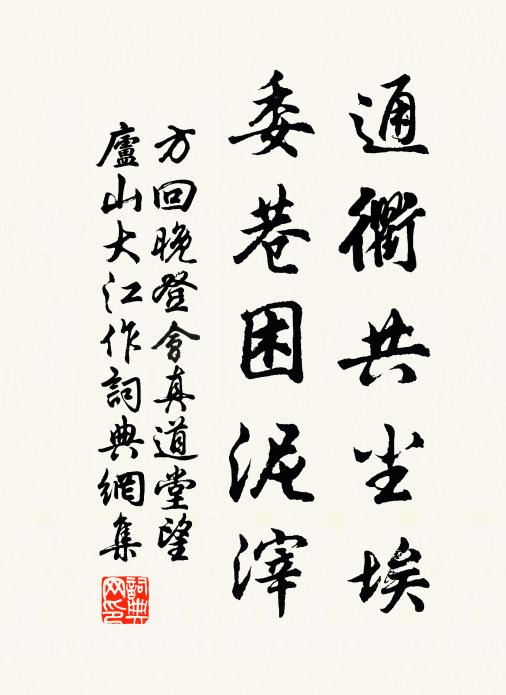 通衢共尘埃
委巷困泥滓
方回晚登會真道堂望
廬山大江作詞典網集
詞典
网印